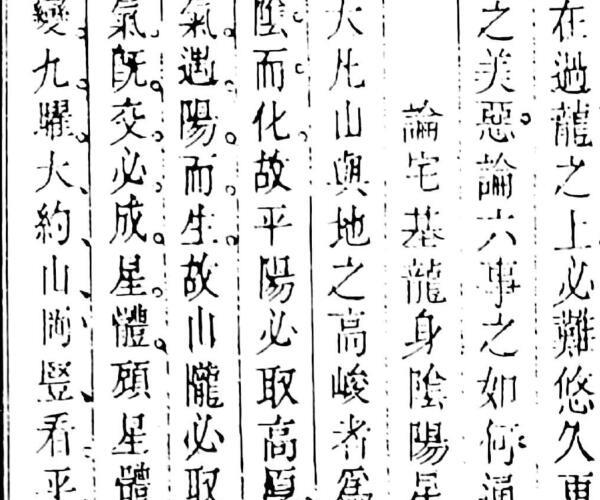 在過龍之上必難悠久更
之美惡論六事之如何
論宅基龍身陰陽星
大凡山與地之高峻者爲
陰而化故平陽必取高
氣遇陽而生故山隴必取
氣旣交必成星體顧星體
變九曜大約山崗豎看平